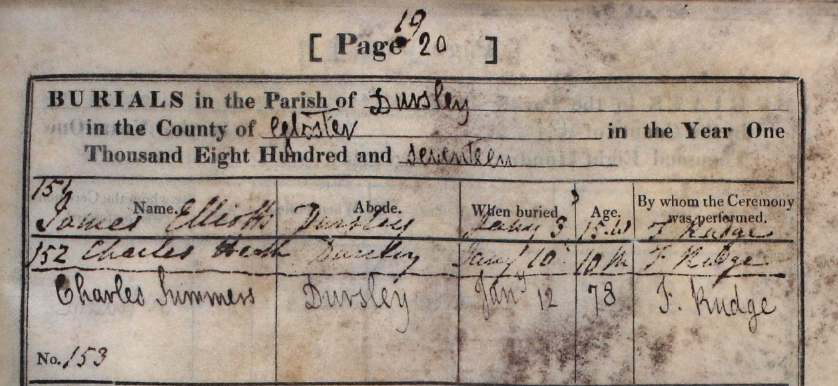 19
[ Page 20 ]
BURIALS in the Parish of Dursley
in the County of Gloster in the Year One
Thousand Eight Hundred and seventeen
151
Name. Abode. When buried Age. By whom the Ceremony was performed.
James Elliott Dursley Jany 3 F Rudge
152 Charles Heath Dursley Jany 10 10 M F Rudge
Charles Summers Dursley Jany 12 78 F. Rudge
No. 153